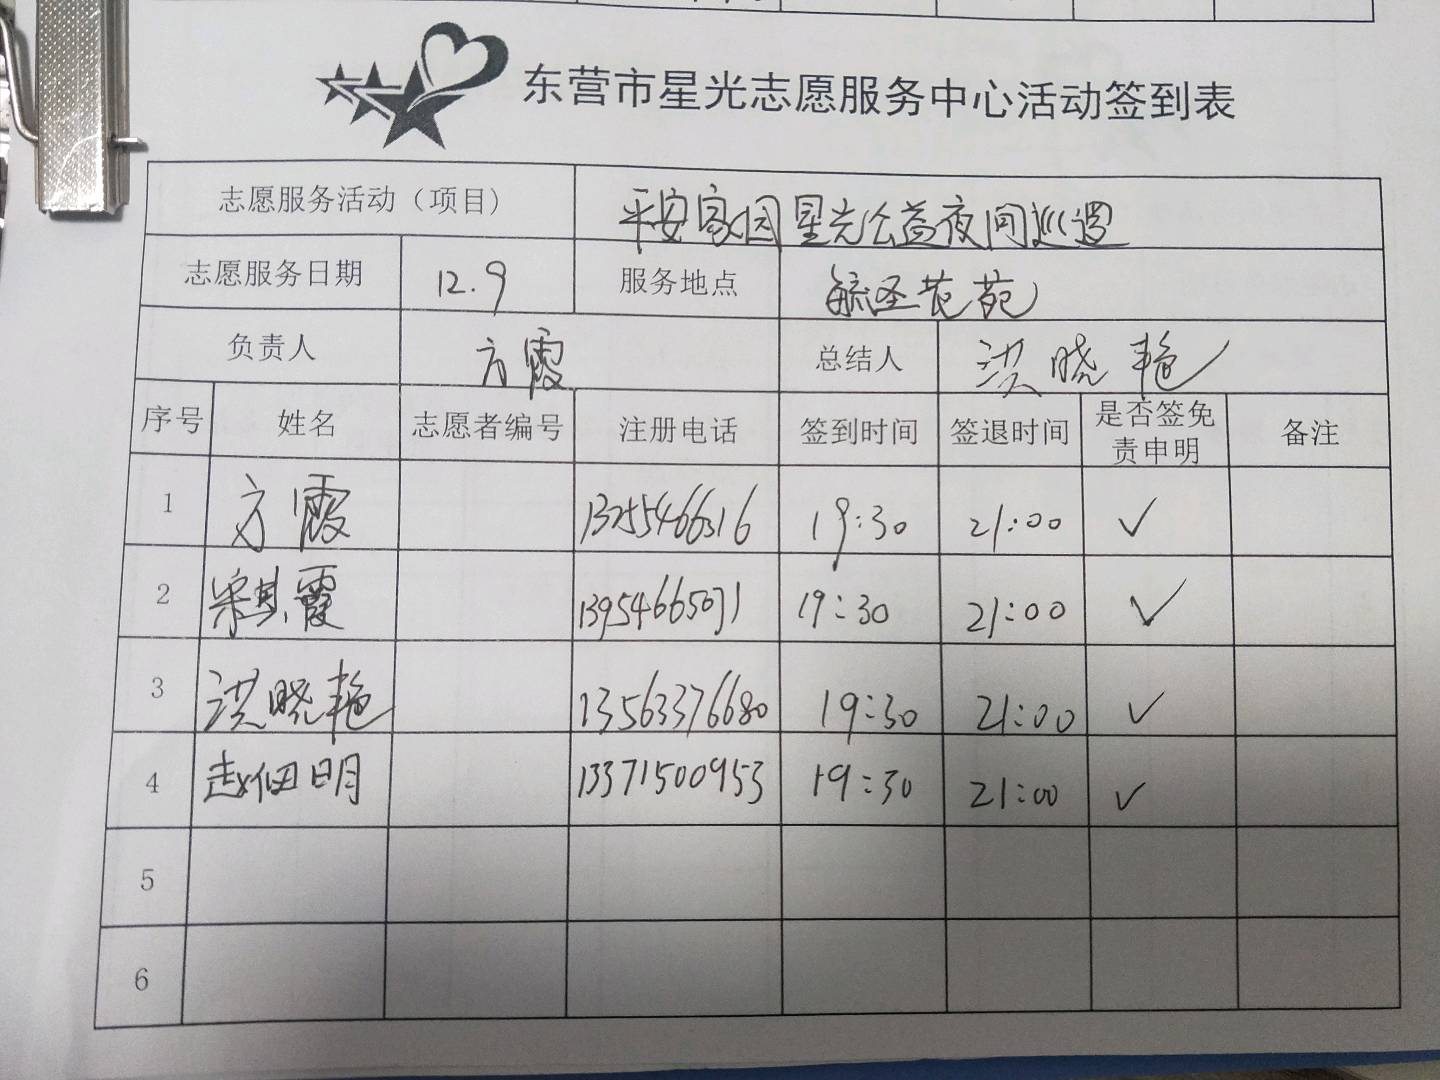 东营市星光志愿服务中心活动签到表
志愿服务活动（项目） 平安家园星光公益夜间巡逻
志愿服务日期 12.9 服务地点 毓圣花苑
负责人 方霞 总结人 洪晓艳
序号 姓名 志愿者编号 注册电话 签到时间 签退时间 是否签免责申明 备注
1 方霞 13255466316 19:30 21:00 ✓
2 宋其霞 13954665071 19:30 21:00 ✓
3 洪晓艳 13563376680 19:30 21:00 ✓
4 赵佃明 13371500953 19:30 21:00 ✓
5
6